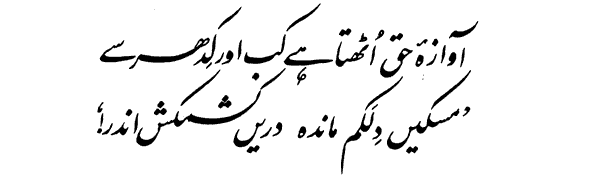 آوازۂ حق اُٹھتا ہے کب اور کِدھر سے
'مسکیں دِلکم ماندہ دریں کشمکش اندر'!